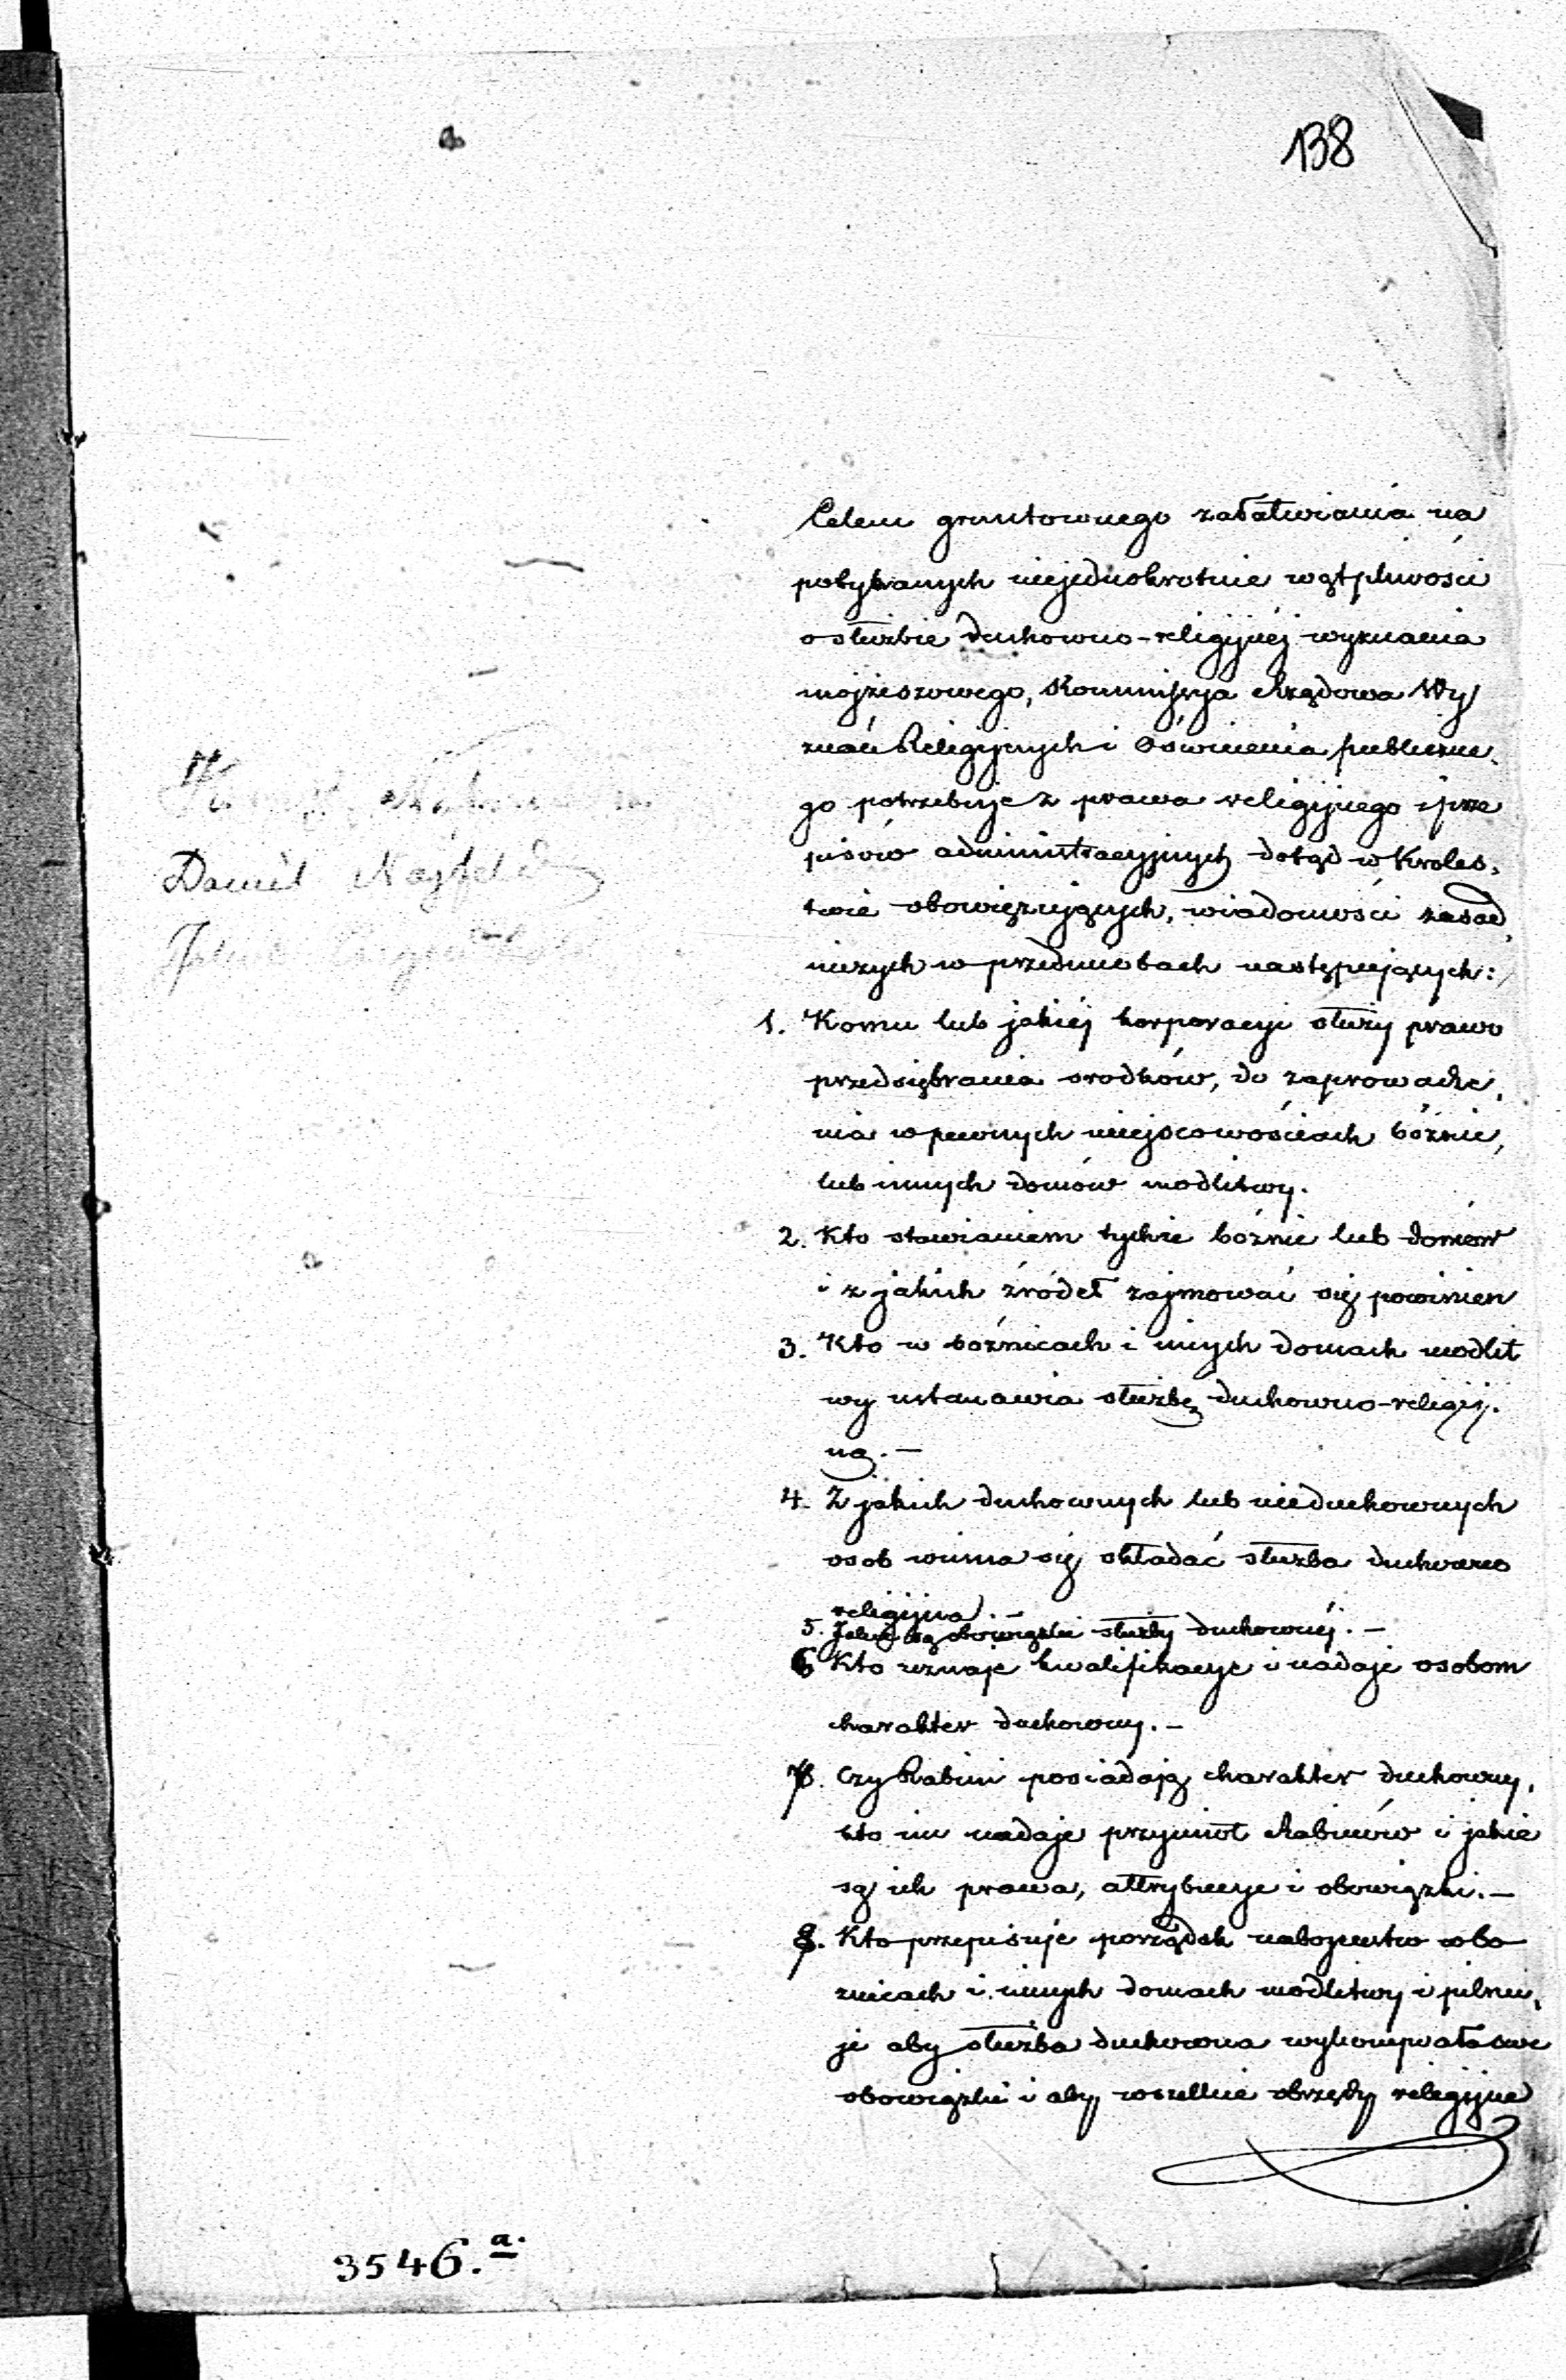 138
Celem gruntownego załatwiania na
potykanych niejednokrotnie wątpliwości
o służbie duchowno-religijnéj wyznania
mojżeszowego, Kommissya Rządowa Wy
znań Religijnych i Oświecenia publiczne,
go potrzebuje z prawa religijnego i prze
pisów administracyjnych dotąd w Króles,
twie obowięzujących, wiadomości zasad,
niczych w przedmiotach następujących:
1. Komu lub jakiéj korporacyi służy prawo
przedsiębrania srodków, do zaprowadze,
nia w pewnych miejscowościach bóżnic,
lub innych domów modlitwy.
2. Kto stawianiem tychże bóżnic lub domów
i z jakich źródeł zajmować się powinien
3. Kto w bóżnicach i innych domach modlit
wy ustanawia służbę duchowno-religij.
ną. —
4. Z jakich duchownych lub nieduchownych
osob winna się składać służba duchowno
religijna. —
5. Jakie są obowiązki służby duchownéj. —
6 Kto uznaje kwalifikacye i nadaje osobom
charakter duchowny. —
7. Czy Rabini posiadają charakter duchowny,
kto im nadaje przymiot Rabinów i jakie
są ich prawa, attrybucye i obowiązki. —
8. Kto przepisuje porządek nabożeństw w bo
żnicach i innych domach modlitwy i pilnu,
je aby służba duchowna wykonywała swe
obowiązki i aby wszelkie obrzędy religijne
Daniel Najfeld
3546.a.